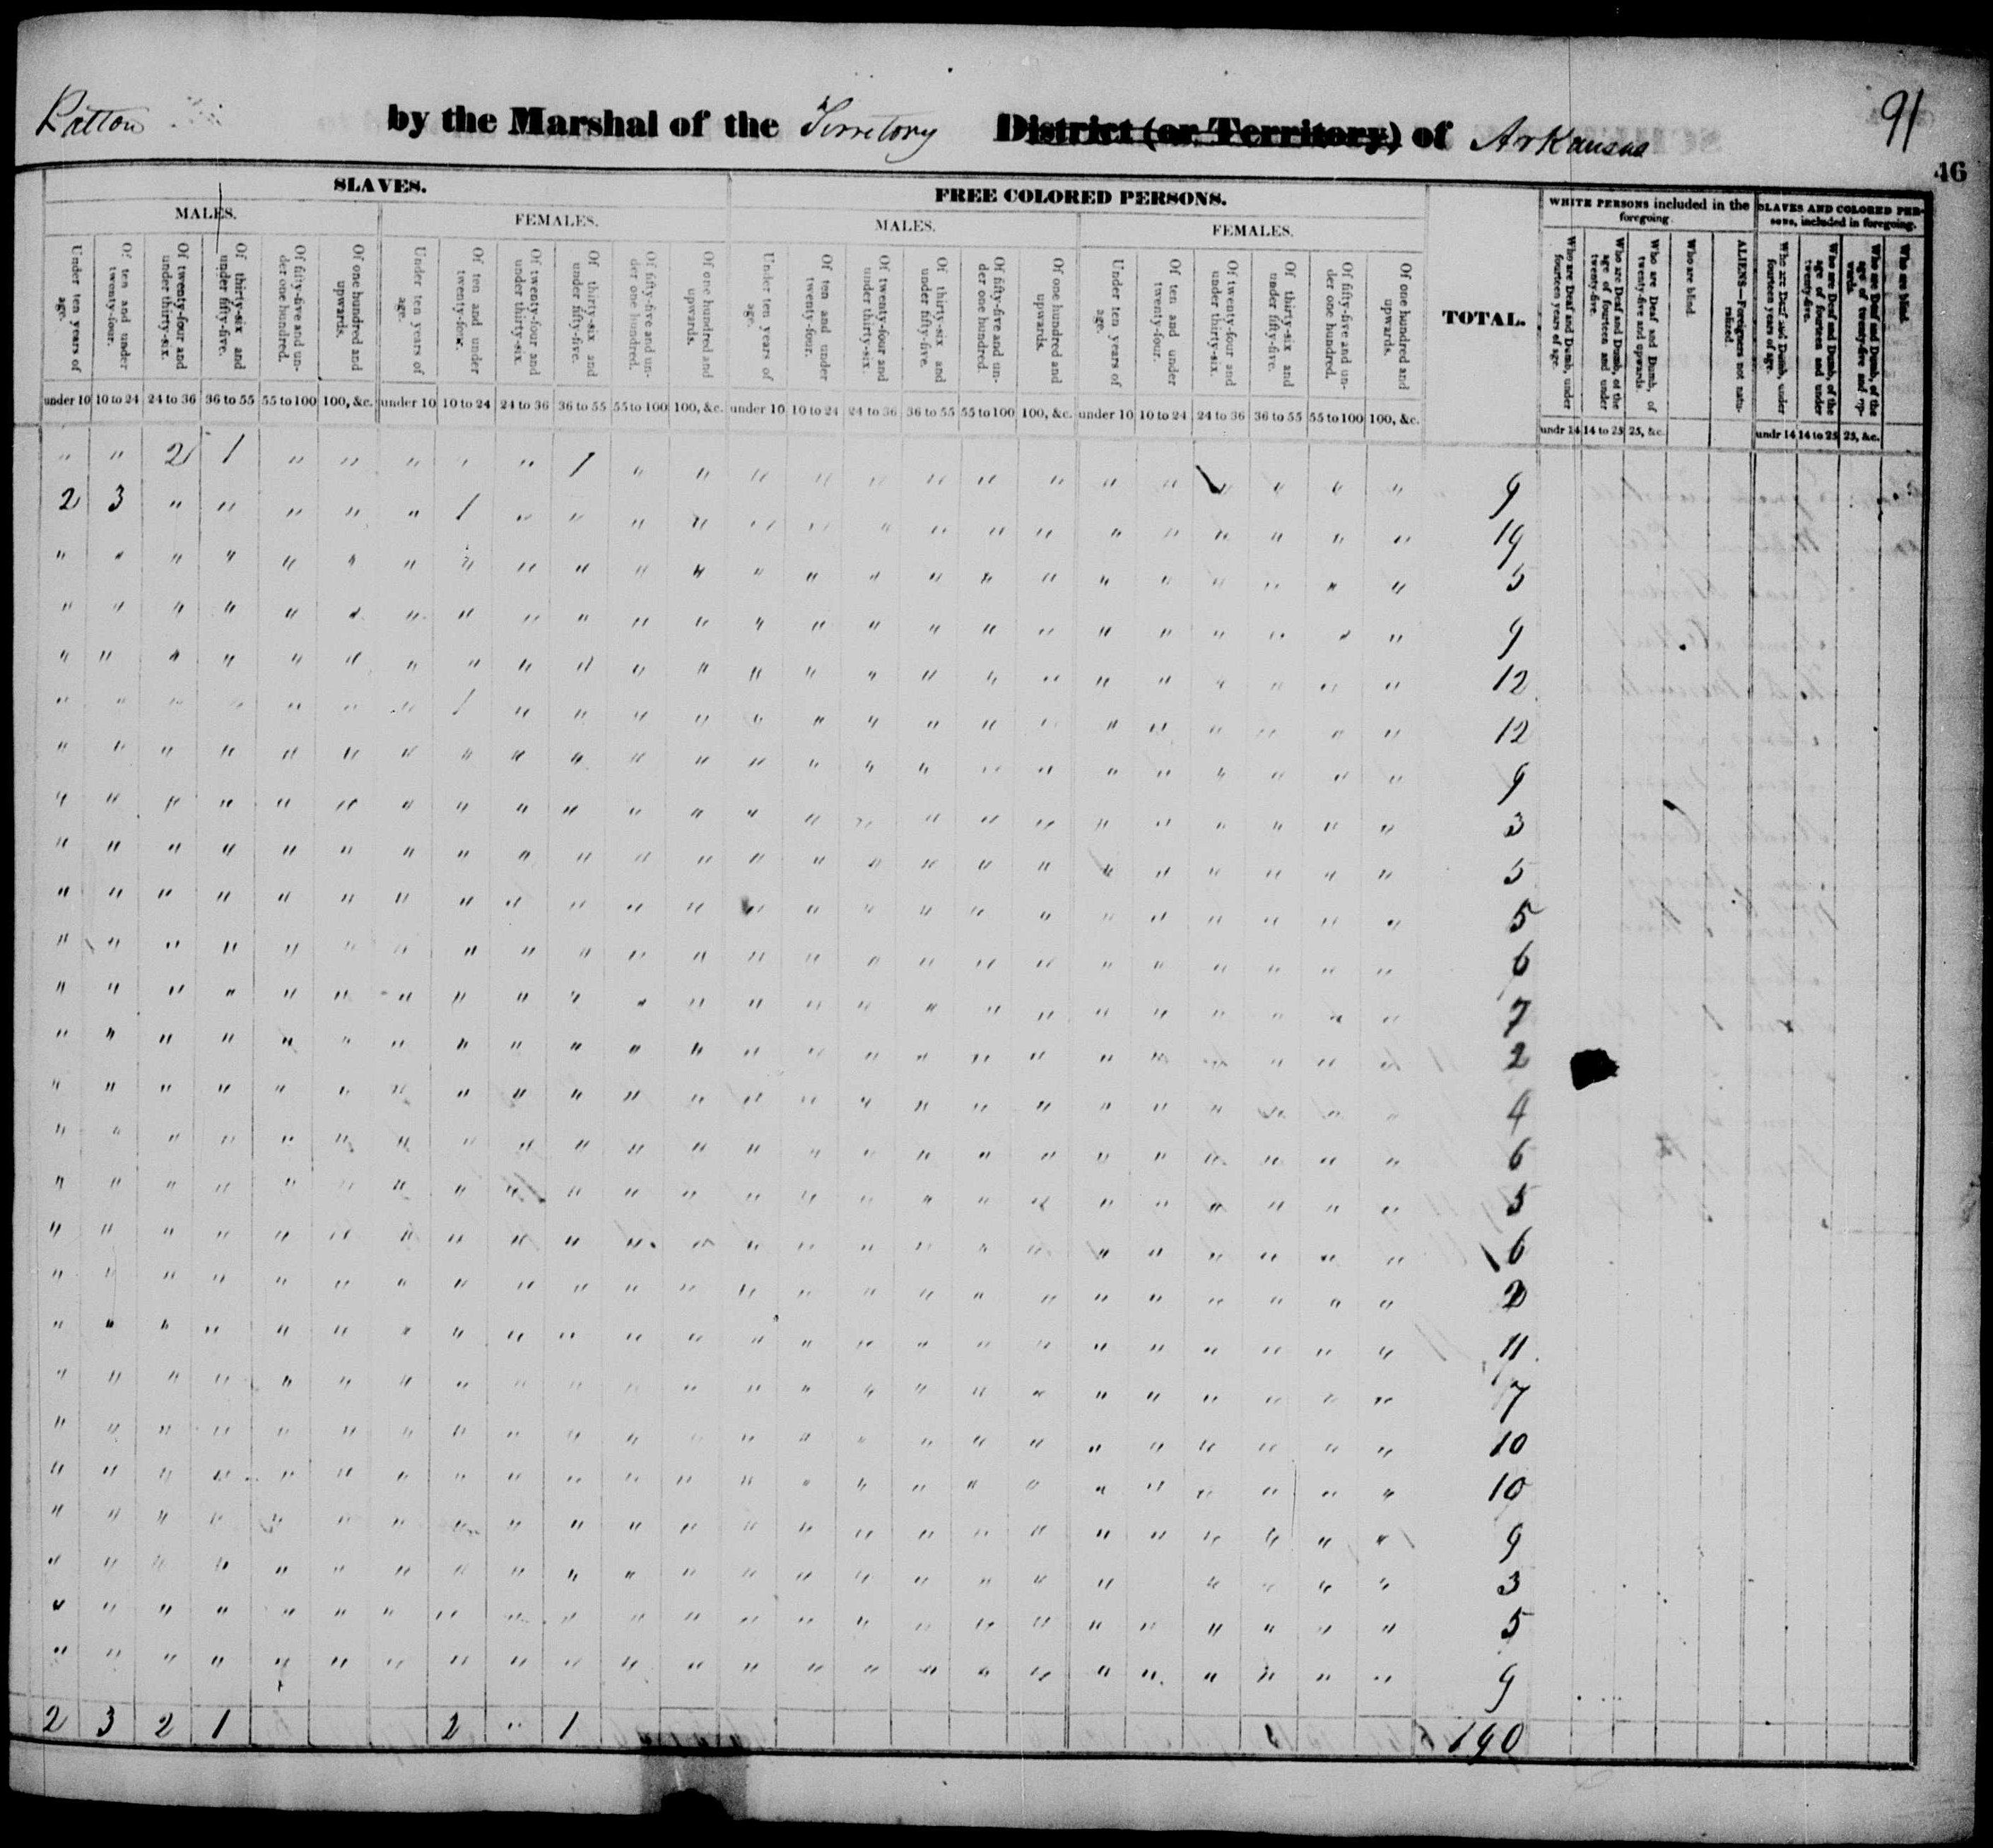 Patton by the Marshal of the Territory District (or Territory) of Arkansas 91
46
SLAVES. FREE COLORED PERSONS. TOTAL. WHITE PERSONS included in the foregoing. SLAVES AND COLORED PERSONS, included in foregoing.
MALES. FEMALES. MALES. FEMALES.
Under ten years of age. Of ten and under twenty-four. Of twenty-four and under thirty-six. Of thirty-six and under fifty-five. Of fifty-five and under one hundred. Of one hundred and upwards. Under ten years of age. Of ten and under twenty-four. Of twenty-four and under thirty-six. Of thirty-six and under fifty-five. Of fifty-five and under one hundred. Of one hundred and upwards. Under ten years of age. Of ten and under twenty-four. Of twenty-four and under thirty-six. Of thirty-six and under fifty-five. Of fifty-five and under one hundred. Of one hundred and upwards. Under ten years of age. Of ten and under twenty-four. Of twenty-four and under thirty-six. Of thirty-six and under fifty-five. Of fifty-five and under one hundred. Of one hundred and upwards. Who are Deaf and Dumb, under fourteen years of age. Who are Deaf and Dumb, of the age of fourteen and under twenty-five. Who are Deaf and Dumb, of twenty-five and upwards. Who are blind. ALIENS—Foreigners not naturalized. Who are Deaf and Dumb, under fourteen years of age. Who are Deaf and Dumb, of the age of fourteen and under twenty-five. Who are Deaf and Dumb, of the age of twenty-five and upwards. Who are blind.
under 10 10 to 24 24 to 36 36 to 55 55 to 100 100, &c. under 10 10 to 24 24 to 36 36 to 55 55 to 100 100, &c. under 10 10 to 24 24 to 36 36 to 55 55 to 100 100, &c. under 10 10 to 24 24 to 36 36 to 55 55 to 100 100, &c. undr 14 14 to 25 25, &c. undr 14 14 to 25 25, &c.
" " 2 1 " " " " " 1 " " " " " " " " " " " " " 9
2 3 " " " " " 1 " " " " " " " " " " " " " " " " 19
" " " " " " " " " " " " " " " " " " " " " " " " 5
" " " " " " " " " " " " " " " " " " " " " " " " 9
" " " " " " " " " " " " " " " " " " " " " " " " 12
" " " " " " " 1 " " " " " " " " " " " " " " " " 12
" " " " " " " " " " " " " " " " " " " " " " " " 9
" " " " " " " " " " " " " " " " " " " " " " " " 3
" " " " " " " " " " " " " " " " " " " " " " " " 5
" " " " " " " " " " " " " " " " " " " " " " " " 5
" " " " " " " " " " " " " " " " " " " " " " " " 6
" " " " " " " " " " " " " " " " " " " " " " " " 7
" " " " " " " " " " " " " " " " " " " " " " " " 2
" " " " " " " " " " " " " " " " " " " " " " " " 4
" " " " " " " " " " " " " " " " " " " " " " " " 6
" " " " " " " " " " " " " " " " " " " " " " " " 5
" " " " " " " " " " " " " " " " " " " " " " " " 6
" " " " " " " " " " " " " " " " " " " " " " " " 2
" " " " " " " " " " " " " " " " " " " " " " " " 11
" " " " " " " " " " " " " " " " " " " " " " " " 7
" " " " " " " " " " " " " " " " " " " " " " " " 10
" " " " " " " " " " " " " " " " " " " " " " " " 10
" " " " " " " " " " " " " " " " " " " " " " " " 9
" " " " " " " " " " " " " " " " " " " " " " " 3
" " " " " " " " " " " " " " " " " " " " " " " " 5
" " " " " " " " " " " " " " " " " " " " " " " " 9
2 3 2 1 2 " 1 190